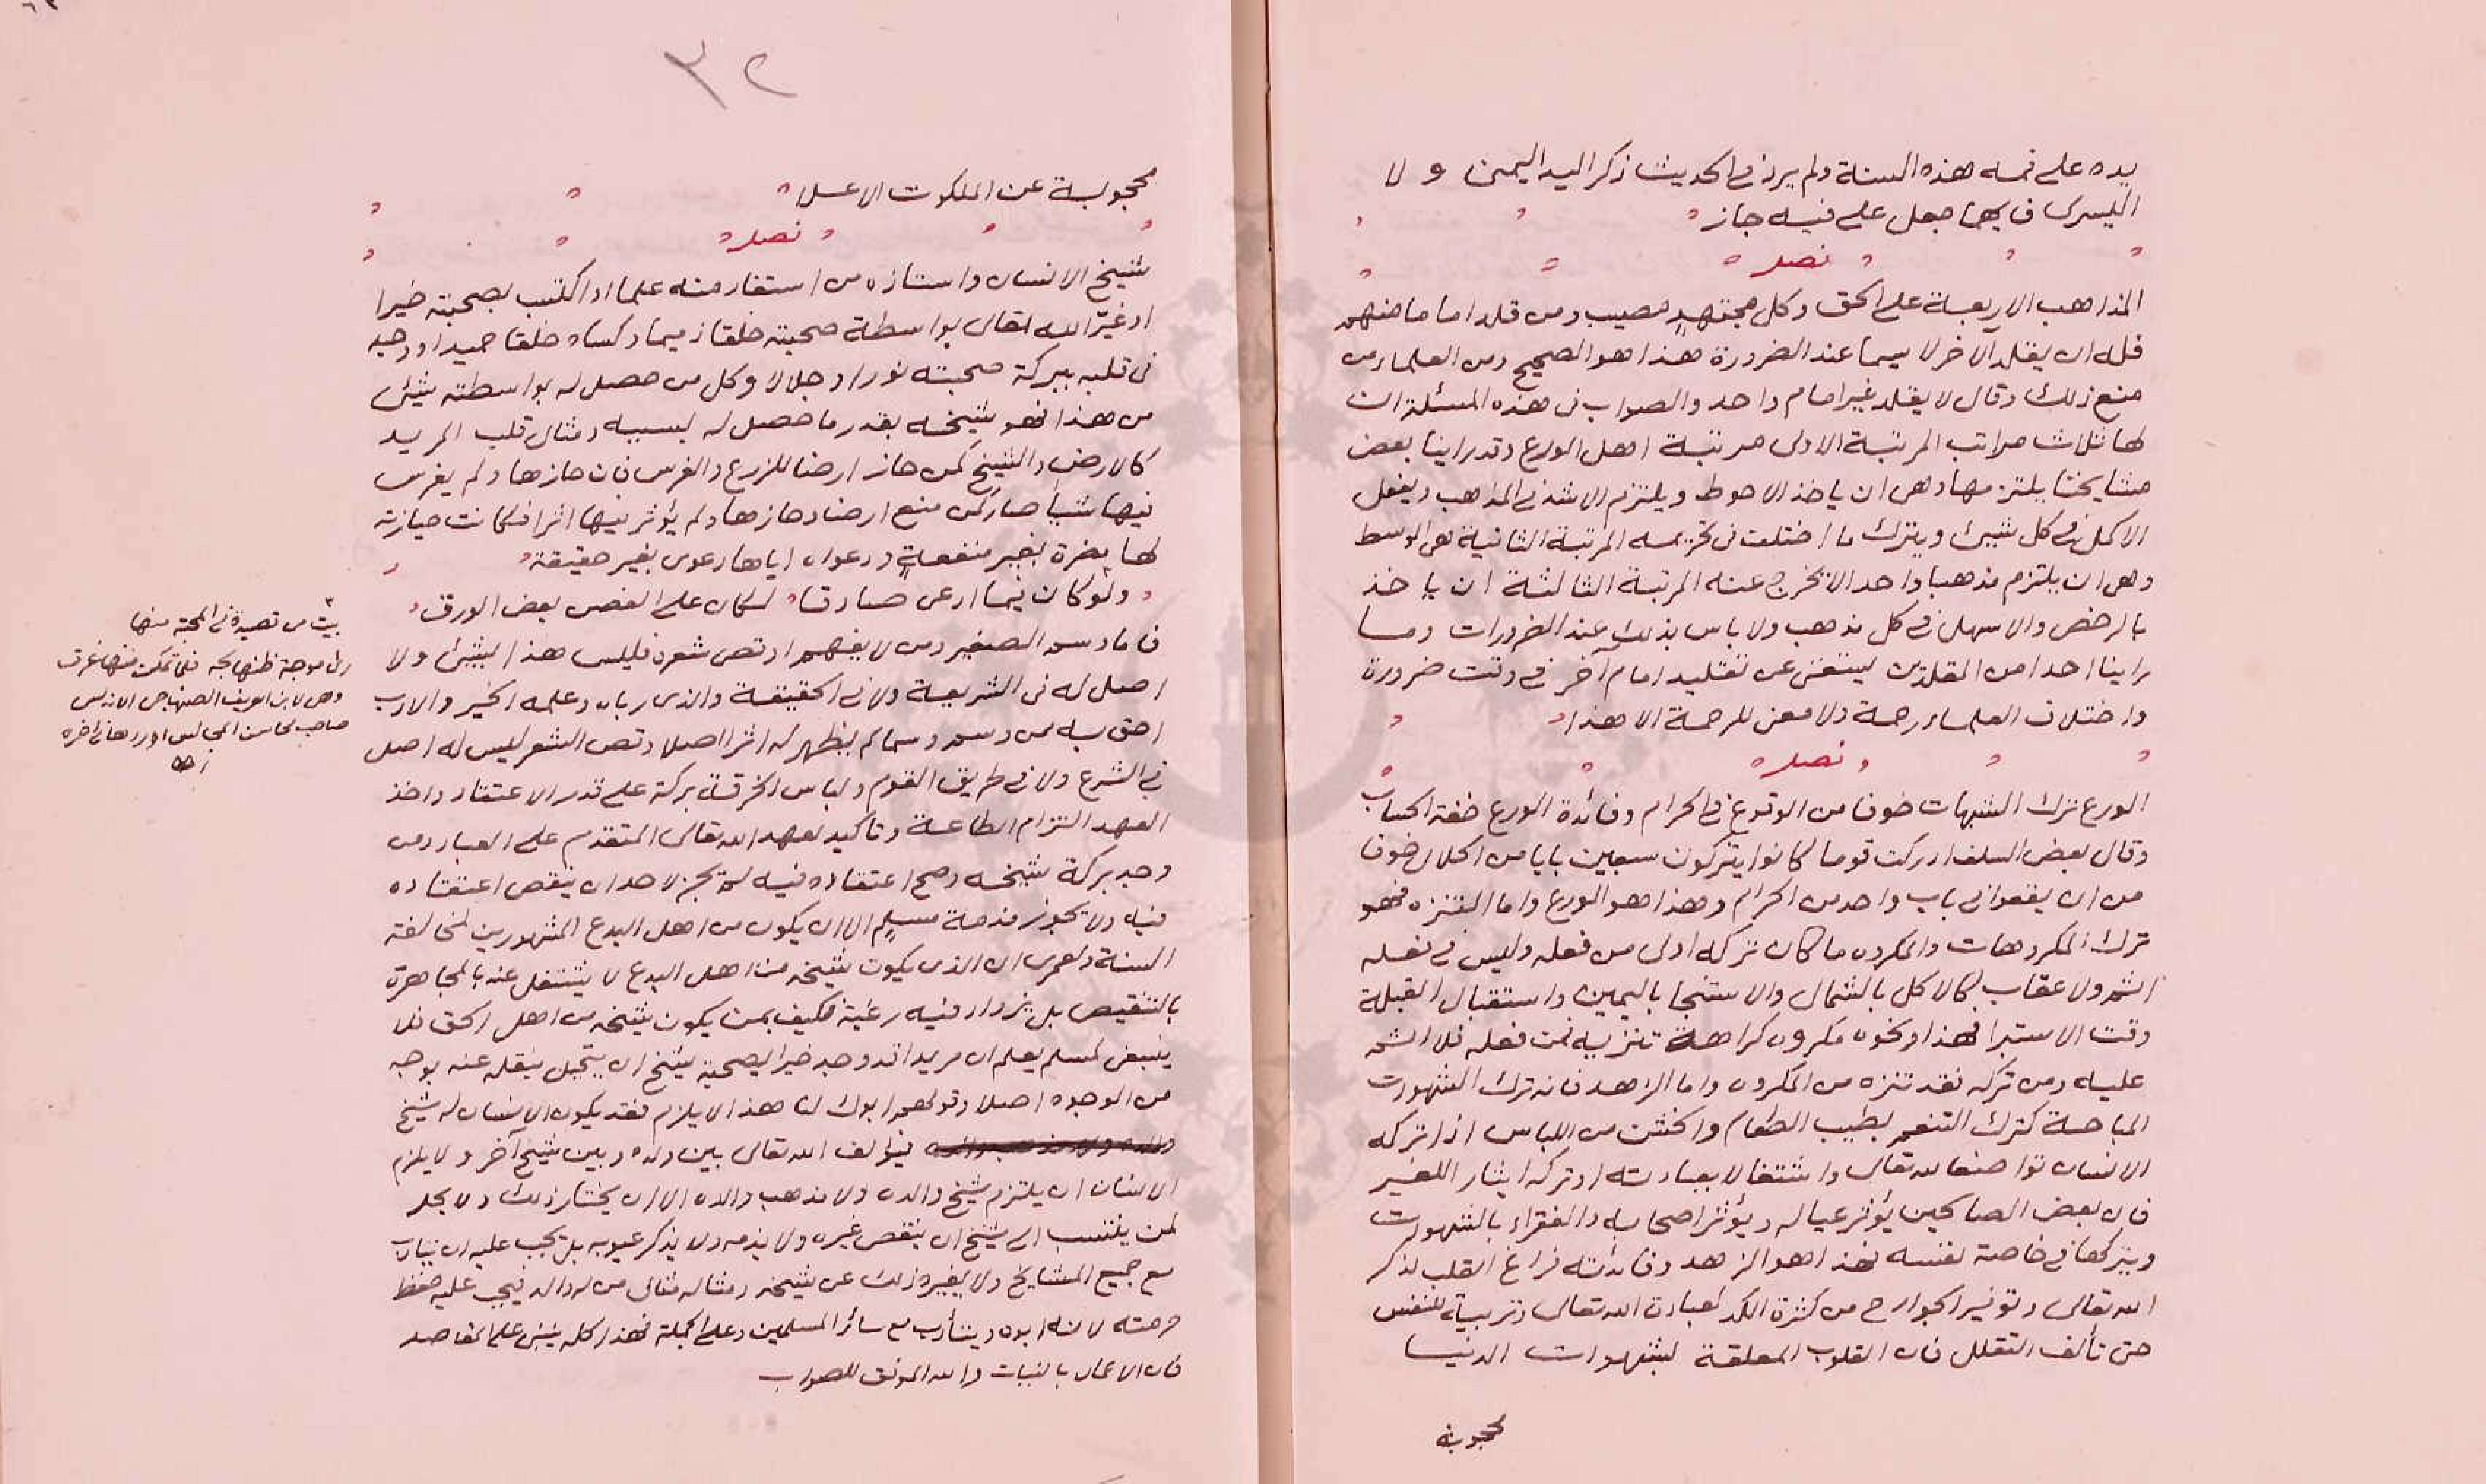 يده على فمه هذه السنة ولم يرد في الحديث ذكر اليد اليمنى ولا
اليسرى فايهما جعل على فيه جاز
فصل
المذاهب الاربعة على الحق وكل مجتهد مصيب ومن قلد اماما منهم
فله ان يقلد الآخر لا سيما عند الضرورة هذا هو الصحيح ومن العلماء من
منع ذلك وقال لا يقلد غير امام واحد والصواب في هذه المسئلة ان
لها ثلاث مراتب المرتبة الاولى مرتبة اهل الورع وقد راينا بعض
مشايخنا يلتزمها وهى ان ياخذ الاحوط ويلتزم الاشد في المذاهب ويفعل
الاكمل في كل شيئ ويترك ما اختلف فى تحريمه المرتبة الثانية هى الوسط
وهى ان يلتزم مذهبا واحدا لا يخرج عنه المرتبة الثالثة ان ياخذ
بالرخص والاسهل في كل مذهب ولا باس بذلك عند الضرورات وما
راينا احدا من المقلدين يستغنى عن تقليد امام آخر في وقت ضرورة
واختلاف العلماء رحمة ولا معنى للرحمة الا هذا
فصل
الورع ترك الشبهات خوفا من الوقوع في الحرام وفائدة الورع خفة الحساب
وقال بعض السلف ادركت قوما كانوا يتركون سبعين بابا من الحلال خوفا
من ان يقعوا في باب واحد من الحرام وهذا هو الورع واما التنزه فهو
ترك المكروهات والمكروه ما كان تركه اولى من فعله وليس في فعله
اثم ولا عقاب كالاكل بالشمال والاستنجا باليمين واستقبال القبلة
وقت الاستبرا فهذا ونحوه مكروه كراهة تنزيه فمن فعله فلا اثم
عليه ومن تركه فقد تنزه من المكروه واما الزاهد فانه ترك الشهوات
المباحة كترك التنعم بطيب الطعام والخشن من اللباس اذا تركه
الانسان تواضعا لله تعالى واشتغالا بعبادته او تركه ايثار اللغير
فان بعض الصالحين يؤثر عياله ويؤثر اصحابه والفقراء بالشهوات
ويتركها في خاصة نفسه فهذا هو الزهد وفائدته فراغ القلب لذكر
الله تعالى وتوفير الجوارح من كثرة الكد لعبادة الله تعالى وتربية للنفس
حتى تألف التقلل فان القلوب المعلقة بشهوات الدنيا
محجوبة
٣٢
محجوبة عن الملكوت الاعلا
فصل
شيخ الانسان واستاذه من استفاد منه علما او اكتسب بصحبته خيرا
او غيّر الله تعالى بواسطة صحبته خلقا ذميما وكساه خلقا حميدا او وجد
فى قلبه ببركة صحبته نورا وجلالا وكل من حصل له بواسطته شيئ
من هذا فهو شيخه بقدر ما حصل له بسببه ومثال قلب المريد
كالارض والشيخ كمن حاز ارضا للزرع والغرس فان حازها ولم يغرس
فيها شيأ صار كمن منع ارضا وحازها ولم يؤثر فيها اثرا فكانت حيازته
لها مضرة بغير منفعة ودعواه اياها دعوى بغير حقيقة
ولو كان فيما ادعى صادقا لكان على الغصن بعض الورق
فاما وسم الصغير ومن لا يفهم او قص شعره فليس هذا بشيئ ولا
اصل له فى الشريعة ولا في الحقيقة والذى رباه وعلمه الخير والادب
احق به ممن وسم وسما لم يظهر له اثر اصلا وقص الشعر ليس له اصل
في الشرع ولا في طريق القوم ولباس الخرقة بركة على قدر الاعتقاد واخذ
العهد التزام الطاعة وتاكيد لعهد الله تعالى المتقدم على العباد ومن
وجد بركة شيخه وصح اعتقاده فيه لم يجز لاحد ان ينقص اعتقاده
فيه ولا تجوز مذمة مسلم الا ان يكون من اهل البدع المشهورين لمخالفة
السنة ولعمرى ان الذى يكون شيخه من اهل البدع لا يشتغل عنه بالمجاهرة
بالتنقيص بل يزداد فيه رغبة فكيف بمن يكون شيخه من اهل الحق فلا
ينبغى لمسلم يعلم ان مريدا قد وجد خيرا بصحبة شيخ ان يتحيل بنقله عنه بوجه
من الوجوه اصلا وقولهم ابوك لنا هذا لا يلزم فقد يكون الانسان له شيخ
فيؤلف الله تعالى بين ولده وبين شيخ آخر ولا يلزم
الانسان ان يلتزم شيخ والده ولا مذهب والده الا ان يختار ذلك ولا يحل
لمن ينتسب الى شيخ ان ينقص غيره ولا يذمه ولا يذكر عيوبه بل يجب عليه ان يتادب
مع جميع المشايخ ولا يغيره ذلك عن شيخه ومثاله مثال من له والد فيجب عليه حفظ
حرمته لانه ابوه ويتأدب مع سائر المسلمين وعلى الجملة فهذا كله يبنى على المقاصد
فان الاعمال بالنيات والله الموفق للصواب
بيت من قصيدة في المحبة منها
راى موجة ظنها لجة فلما تمكن منها غرق
وهى لابن العريف الصنهاجى الاندلسى
صاحب محاسن المجالس اوردها في آخره